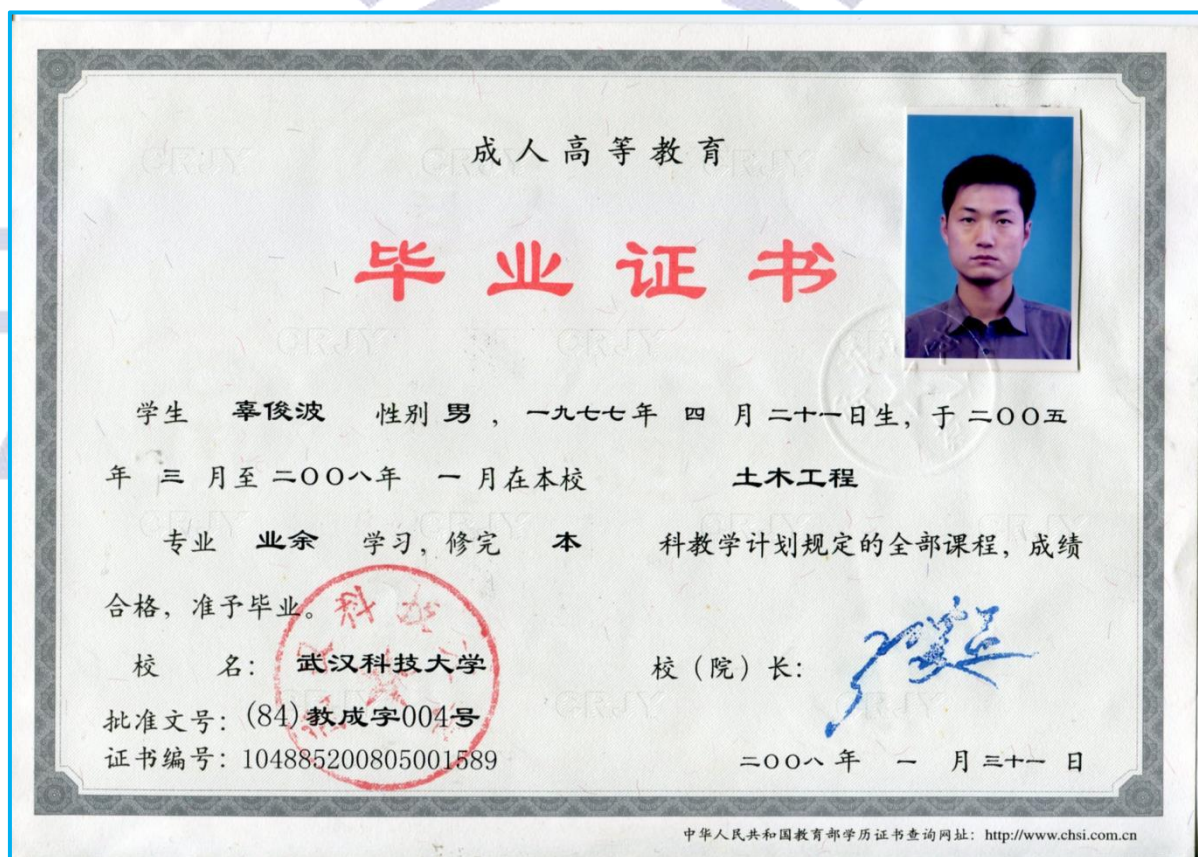 成人高等教育
毕业证书
学生 辜俊波 性别 男 ，一九七七年 四 月 二十一日生，于 二〇〇五
年 三 月至 二〇〇八年 一 月在本校 土木工程
专业 业余 学习，修完 本 科教学计划规定的全部课程，成绩
合格，准予毕业。
校 名： 武汉科技大学 校（院）长：
批准文号：(84)教成字004号
证书编号：104885200805001589 二〇〇八 年 一 月 三十一 日
中华人民共和国教育部学历证书查询网址：http://www.chsi.com.cn